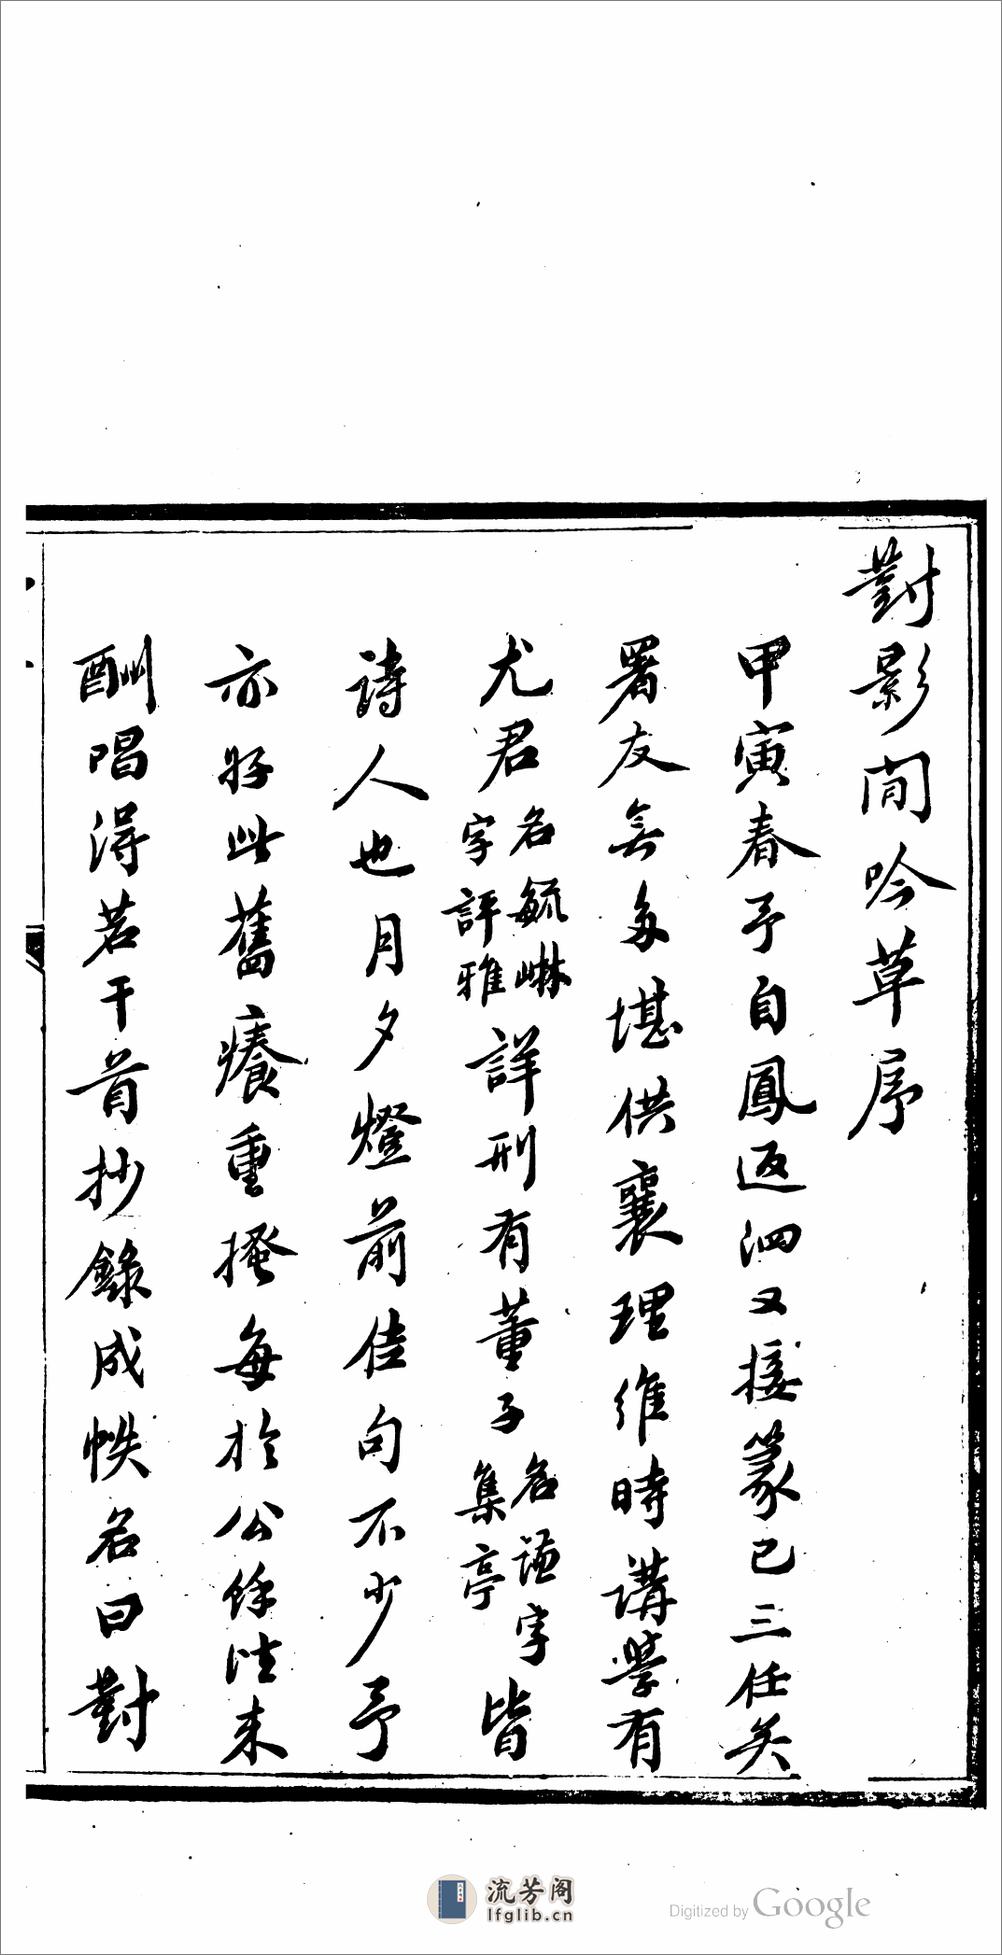 對影閒吟草序
甲寅春予自鳳返泗又接篆已三任矣
署友無多堪供襄理維時講學有
尤君名毓崊字評雅詳刑有董子名謙字集亭皆
詩人也月夕燈前佳句不少予
亦好此舊癢重搔每於公餘往來
酬唱得若干首抄錄成帙名曰對
流芳阁
lfglib.cn
Digitized by Google